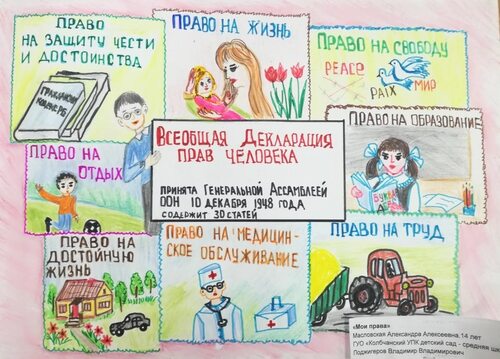 ПРАВО
НА ЗАЩИТУ ЧЕСТИ
И ДОСТОИНСТВА
ГРАЖДАНСКИЙ
КОДЕКС РБ
ПРАВО НА ЖИЗНЬ
ПРАВО НА СВОБОДУ
PEACE
PAIX
МИР
ПРАВО НА
ОТДЫХ
ВСЕОБЩАЯ ДЕКЛАРАЦИЯ
ПРАВ ЧЕЛОВЕКА
ПРИНЯТА ГЕНЕРАЛЬНОЙ АССАМБЛЕЕЙ
ООН 10 ДЕКАБРЯ 1948 ГОДА
СОДЕРЖИТ 30 СТАТЕЙ
ПРАВО НА ОБРАЗОВАНИЕ
ПРАВО НА
ДОСТОЙНУЮ
ЖИЗНЬ
ПРАВО НА МЕДИЦИН-
СКОЕ ОБСЛУЖИВАНИЕ
ПРАВО НА ТРУД
«Мои права»
Масловская Александра Алексеевна, 14 лет
ГУО «Колбчанский УПК детский сад - средняя
Поджигов Владимир Владимирович